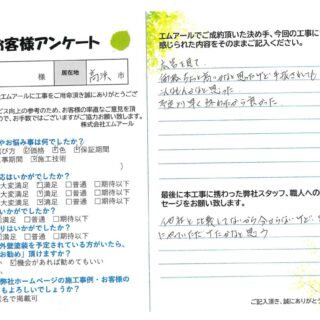 お客様アンケート
様 居在地 高浜 市
エムアールに工事をご用命頂き誠にありがとうござ
ビス向上の参考のため、お客様の率直なご意見を頂
ので、お手数ではございますがご協力お願い致します。
株式会社エムアール
やお悩み事は何でしたか？
び方 ☑価格 色 □保証期間
事期間 ☑施工技術
応はいかがでしたか？
大変満足 満足 □普通 □期待以下
大変満足 満足 □普通 □期待以下
はいかがでしたか？
大変満足 満足 □普通 □期待以下
りはいかがでしたか？
大変満足 満足 □普通 □期待以下
外壁塗装を予定されている方がいたら、
お勧め」頂けますか？
い ☑機会があれば勧めてもいい
弊社ホームページの施工事例・お客様の
もよろしいでしょうか？
名で掲載可
エムアールでご成約頂いた決め手、今回の工事に
感じられた内容をそのままご記入ください。
広告を見て
最後に本工事に携わった弊社スタッフ、職人への
セージをお願い致します。
他社と比較してないから分からないけど、
と思う
ご記入頂き、誠にありがとう